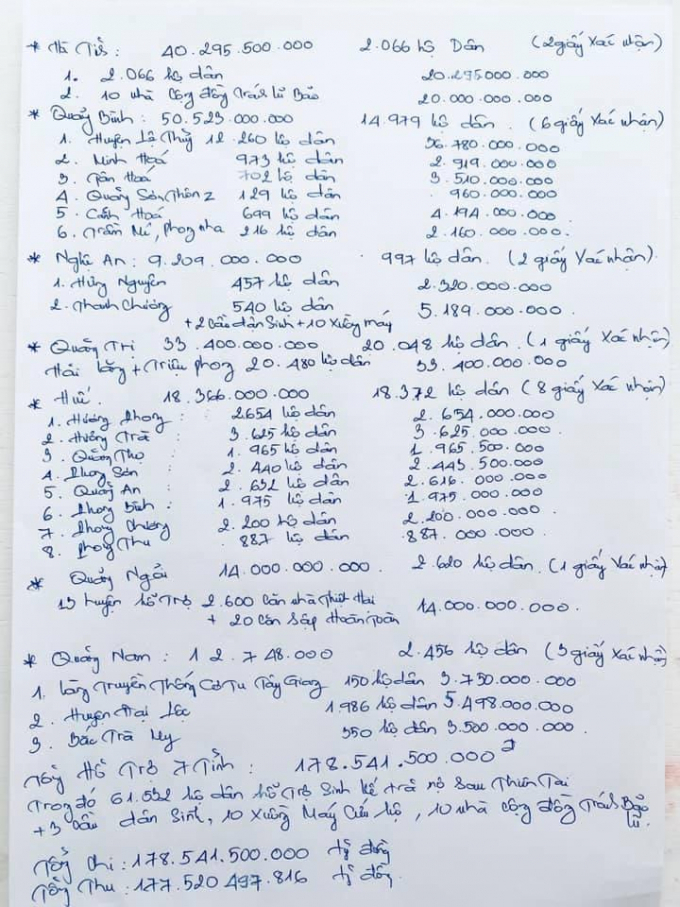 * Hà Tĩnh : 40.295.500.000 2.066 hộ Dân (2 giấy Xác nhận)
1. 2.066 hộ dân 20.295.000.000
2. 10 nhà Cộng đồng Tránh lũ Bão 20.000.000.000
* Quảng Bình : 50.523.000.000 14.979 hộ dân. (6 giấy Xác nhận)
1. Huyện Lệ Thủy 12.260 hộ dân 36.780.000.000
2. Minh Hoá 973 hộ dân 2.919.000.000
3. Tân Hoá 702 hộ dân 3.510.000.000
4. Quảng Sơn, Thôn 2 129 hộ dân 960.000.000
5. Cảnh Hoá 699 hộ dân 4.194.000.000
6. Trầm Mé, Phong nha 216 hộ dân 2.160.000.000
* Nghệ An : 9.209.000.000 997 hộ dân. (2 giấy Xác nhận).
1. Hưng Nguyên 457 hộ dân 2.320.000.000
2. Thanh Chương 540 hộ dân 5.189.000.000
+ 2 Cầu dân Sinh + 10 Xuồng máy
* Quảng Trị 33.400.000.000 20.048 hộ dân. (1 giấy Xác nhận)
Hải Lăng + Triệu phong 20.480 hộ dân 33.400.000.000
* Huế. 18.366.000.000 18.372 hộ dân (8 giấy Xác nhận)
1. Hương Phong : 2.654 hộ dân 2.654.000.000
2. Hương Trà : 3.625 hộ dân 3.625.000.000
3. Quảng Thọ : 1.965 hộ dân 1.965.500.000
4. Phong Sơn : 2.440 hộ dân 2.443.500.000
5. Quảng An : 2.632 hộ dân 2.616.000.000
6. Phong Bình : 1.975 hộ dân 1.975.000.000
7. Phong Chương 2.200 hộ dân 2.200.000.000
8. Phong Thu 887 hộ dân 887.000.000
* Quảng Ngãi 14.000.000.000 2.620 hộ dân. (1 giấy Xác nhận)
13 huyện hỗ Trợ 2.600 Căn nhà Thiệt Hại 14.000.000.000.
+ 20 Căn Sập Hoàn Toàn
* Quảng Nam : 12.748.000 2.456 hộ dân (3 giấy Xác nhận)
1. Làng Truyền Thống Cơ Tu Tây Giang 150 hộ dân 3.750.000.000
2. Huyện Đại Lộc 1.986 hộ dân 5.498.000.000
3. Bắc Trà My 350 hộ dân 3.500.000.000
Tổng Hỗ Trợ 7 Tỉnh : 178.541.500.000
Trong đó 61.532 hộ dân hỗ Trợ Sinh kế trả nợ Sau Thiên Tai
+ 3 Cầu dân Sinh, 10 Xuồng Máy Cứu hộ, 10 nhà Cộng đồng Tránh Bão lũ.
Tổng Chi : 178.541.500.000 tỷ đồng
Tổng Thu : 177.520.497.816 tỷ đồng.